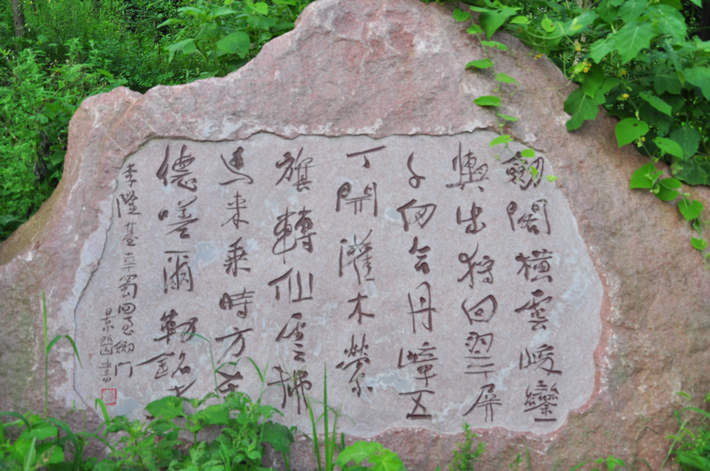 劔閣橫雲峻鑾
輿出狩回翠屏
千仞合丹嶂五
丁開灌木縈
旗轉仙雲拂
馬來乘時方在
德嗟爾勒銘才
李隆基幸蜀回至劍門
書